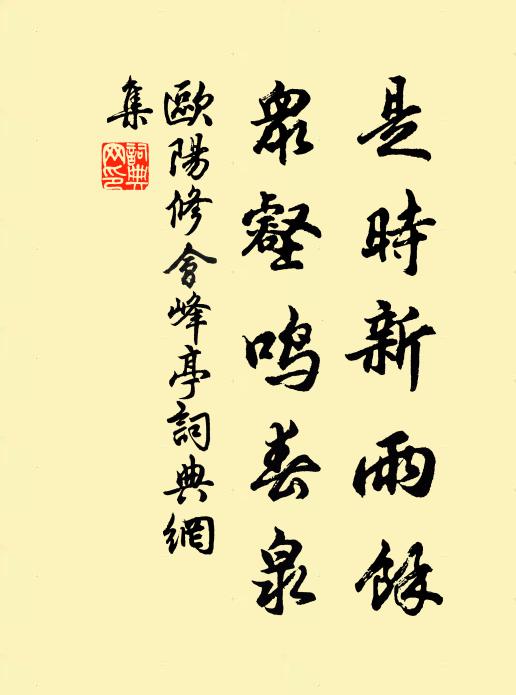 是時新雨餘
眾壑鳴春泉
歐陽修會峰亭詞典網
集
詞典網印